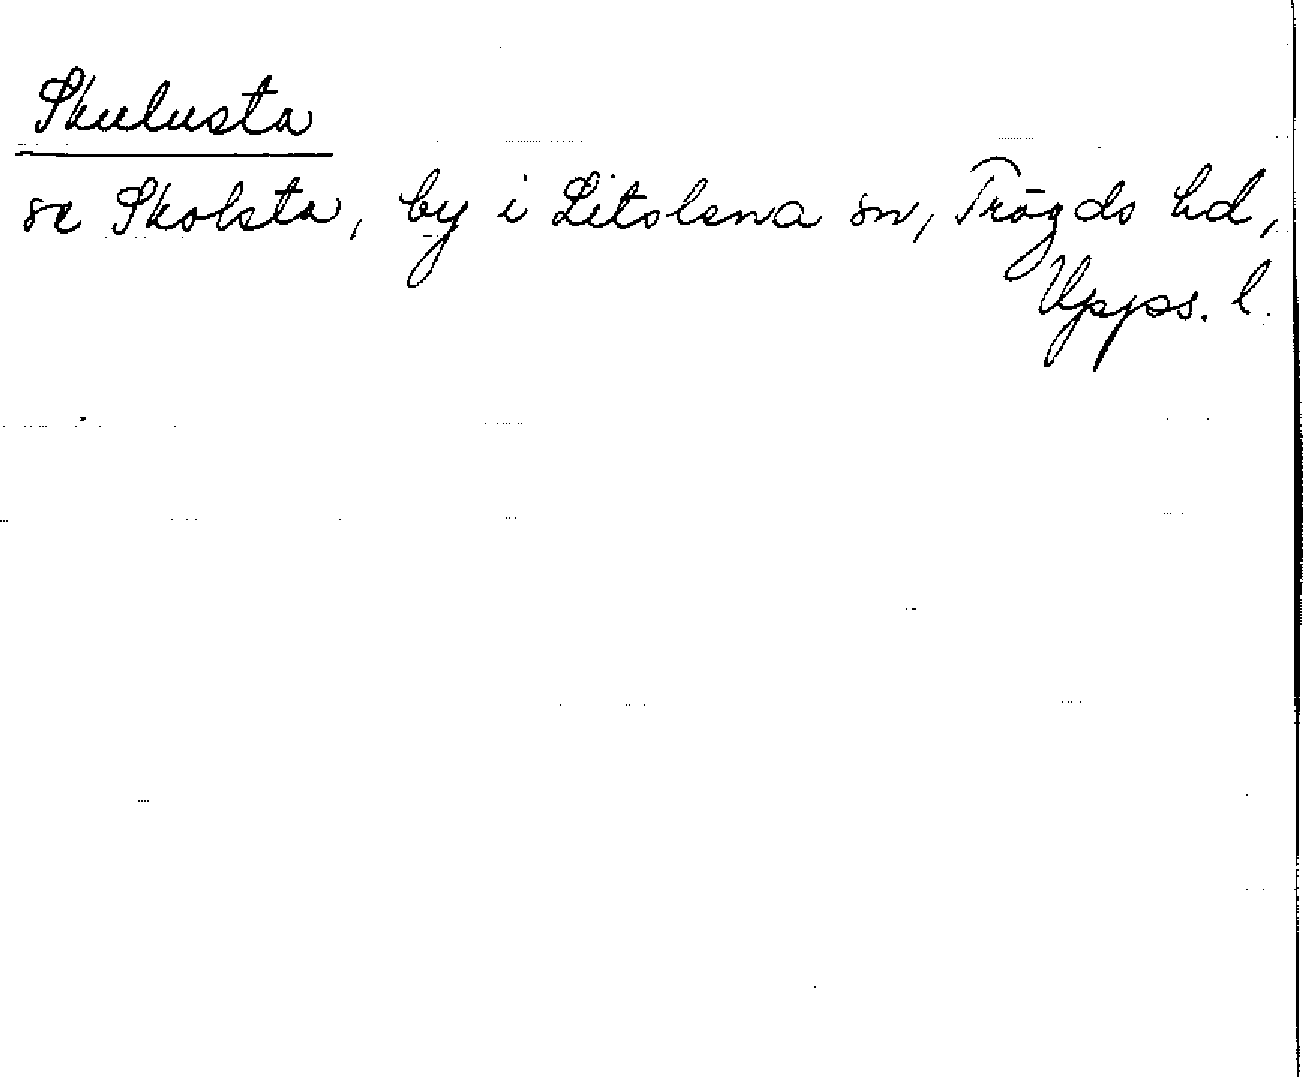 Skulusta
se Skolsta, by i Litslena sn, Trögds hd,
Upps. l.